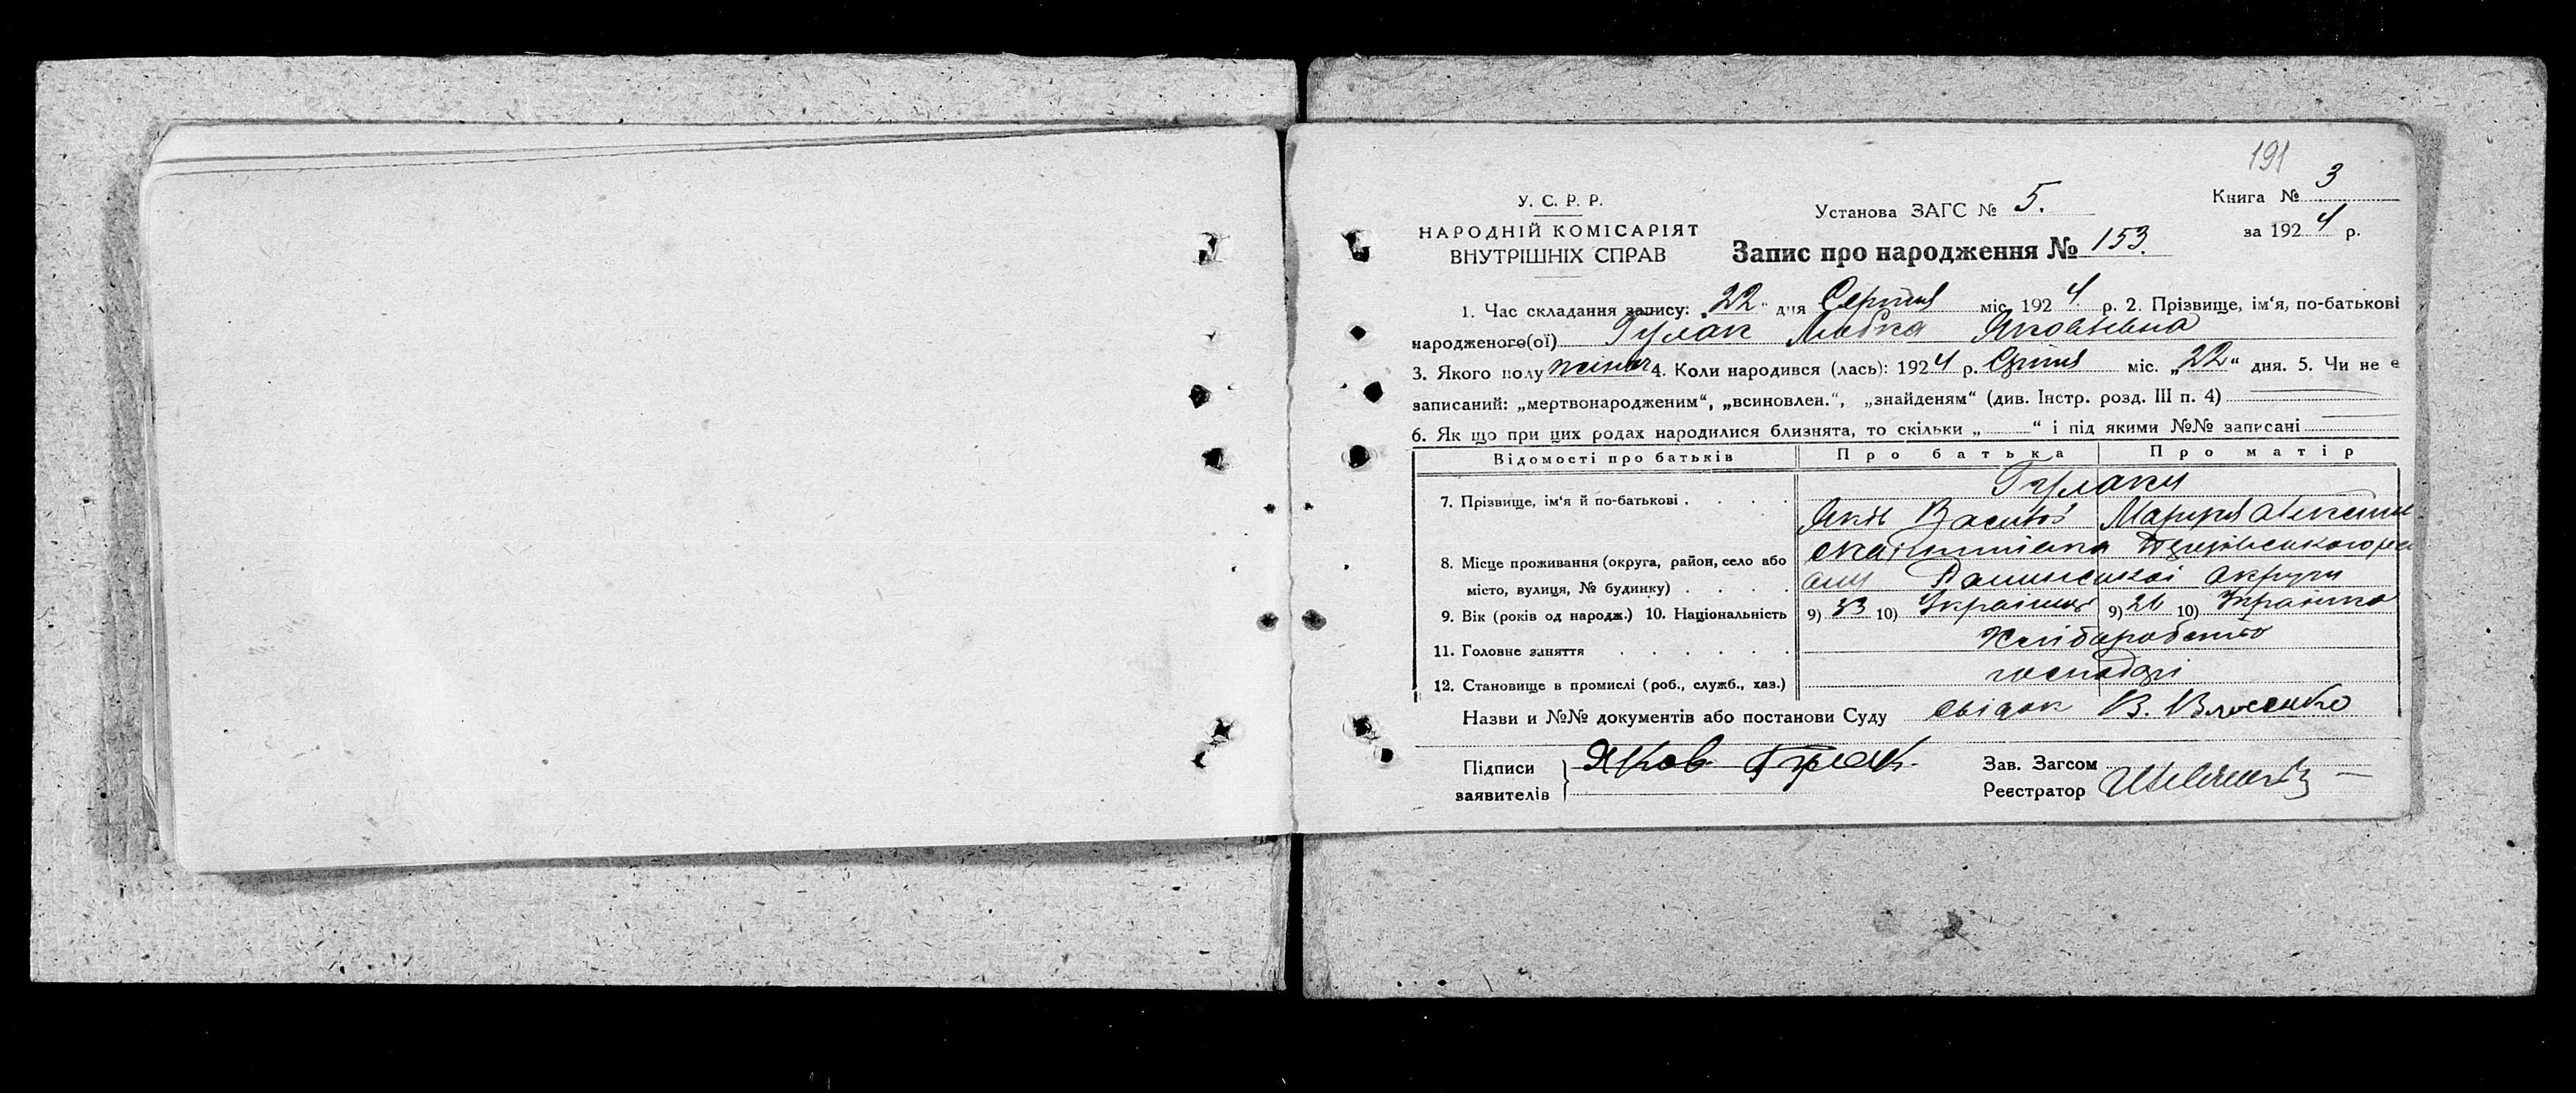 191
У. С. Р. Р.
НАРОДНІЙ КОМІСАРІЯТ
ВНУТРІШНІХ СПРАВ
Установа ЗАГС № 5.
Книга № 3
за 1924 р.
Запис про народження № 153.
1. Час складання запису: „22“ дня Серпня міс. 1924 р. 2. Прізвище, ім‘я, по-батькові
народженого(ої) Гулак Любка Яковлевна
3. Якого полу жіноч 4. Коли народився (лась): 1924 р. Серпня міс. „22“ дня. 5. Чи не є
записаний: „мертвонародженим“, „всиновлен.“, „знайденям“ (див. Інстр. розд. III п. 4)
6. Як що при цих родах народилися близнята, то скільки „ “ і під якими №№ записані
Відомості про батьків Про батька Про матір
7. Прізвище, ім‘я й по-батькові Гулаки
Яків Васильов Марія
8. Місце проживання (округа, район, село або
місто, вулиця, № будинку) Роменської округи
9. Вік (років од народж.) 10. Національність 9) 33 10) Українець 9) 26 10) Українка
11. Головне заняття Хліборобство
12. Становище в промислі (роб., служб., хаз.) господарі
Назви и №№ документів або постанови Суду свідок В. Власенко
Підписи
заявителів Яков Гулак
Зав. Загсом
Реєстратор